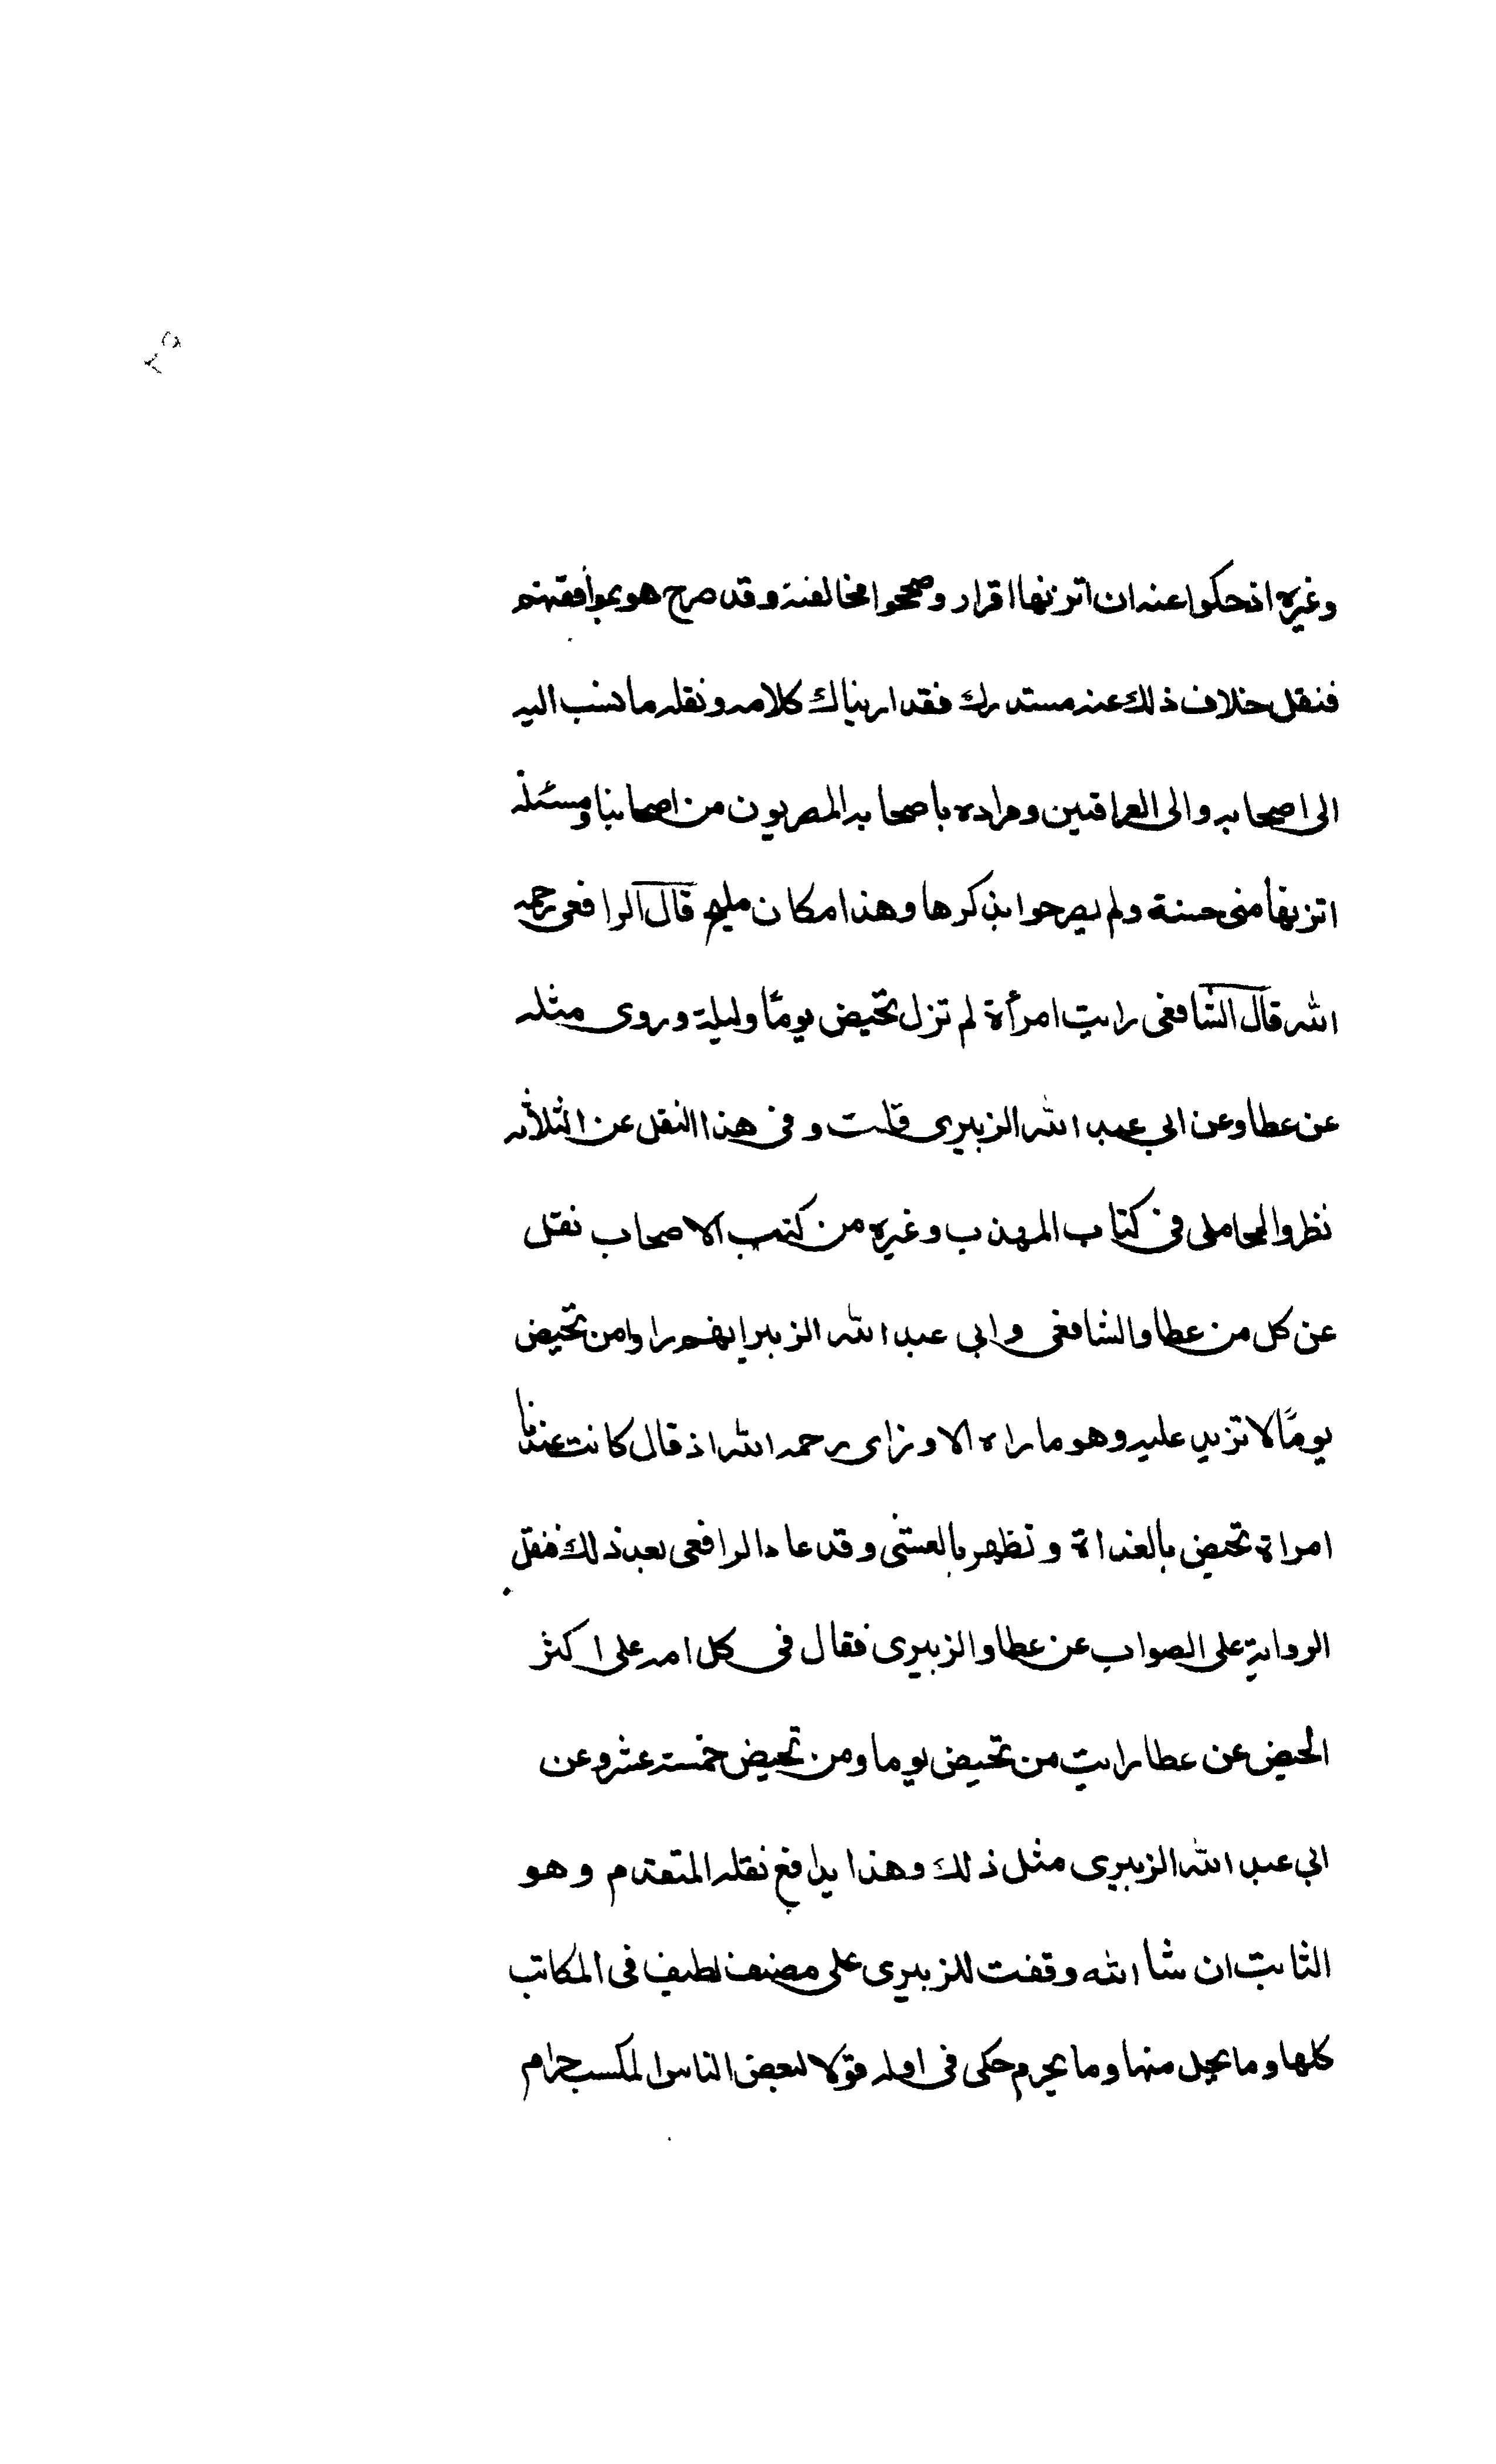 وغيره اذ حكوا عنه ان اتزنها اقرار وصححوا مخالفته وقد صرح هو بموافقتهم
فنقل خلاف ذلك عنه مستدرك فقد اريناك كلامه ونقله ما نسب اليه
الى اصحابه والى العراقيين ومراده باصحابه المصريون من اصحابنا ومسئلة
اتزنها منى حسنة ولم يصرحوا بذكرها وهذا مكان مليح قال الرافعى رحمه
الله قال الشافعى رايت امرأة لم تزل تحيض يومًا وليلة وروى مثله
عن عطا وعن ابي عبد الله الزبيرى قلت وفى هذا النقل عن الثلاثه
نظر والمحاملى فى كتاب المهذب وغيره من كتب الاصحاب نقل
عن كل من عطا والشافعى وابي عبد الله الزبير انهم راوا من تحيض
يومًا لا تزيد عليه وهو ما راه الاوزاى رحمه الله اذ قال كانت عندنا
امراة تحيض بالغداة وتطهر بالعشى وقد عاد الرافعى بعد ذلك فنقل
الرواية على الصواب عن عطا والزبيرى فقال فى كلامه على اكثر
الحيض عن عطا رايت من تحيض يوما ومن تحيض خمسة عشر وعن
ابي عبد الله الزبيرى مثل ذلك وهذا يدافع نقله المتقدم وهو
الثابت ان شا الله وقفت للزبيرى على مصنف لطيف فى المكاسب
كلها وما يحل منها وما يحرم حكى فى اوله قولا لبعض الناس المكسب حرام